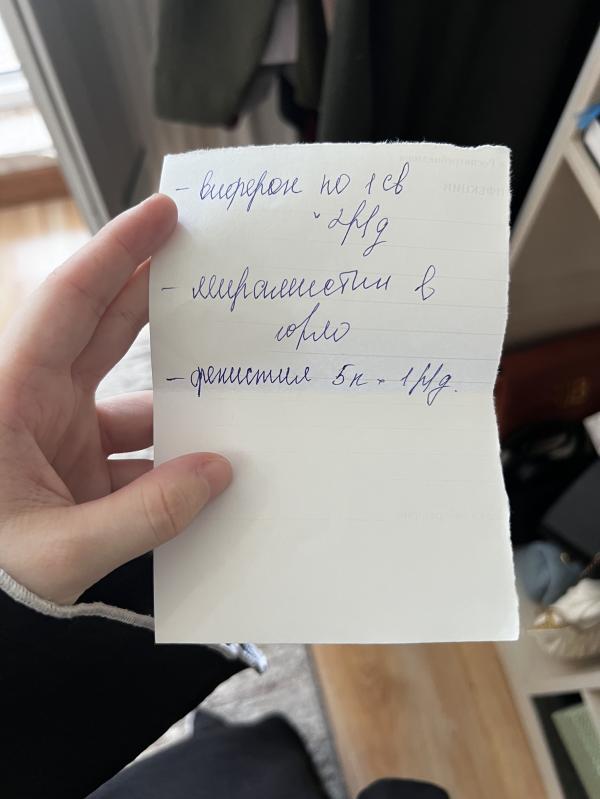 - виферон по 1 св
2р/д
- мирамистин в
горло
- фенистил 5к 1р/д.